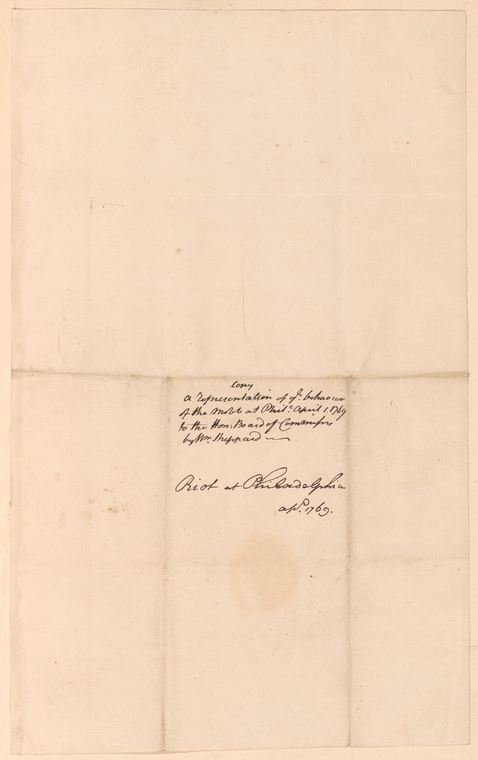 Copy
a representation of ye. behavior
of the Mobb at Phila. April 1. 1769
to the Hon: Board of Commissrs
by Wm. Sheppard
Riot at Philadelphia
apl. 1769.